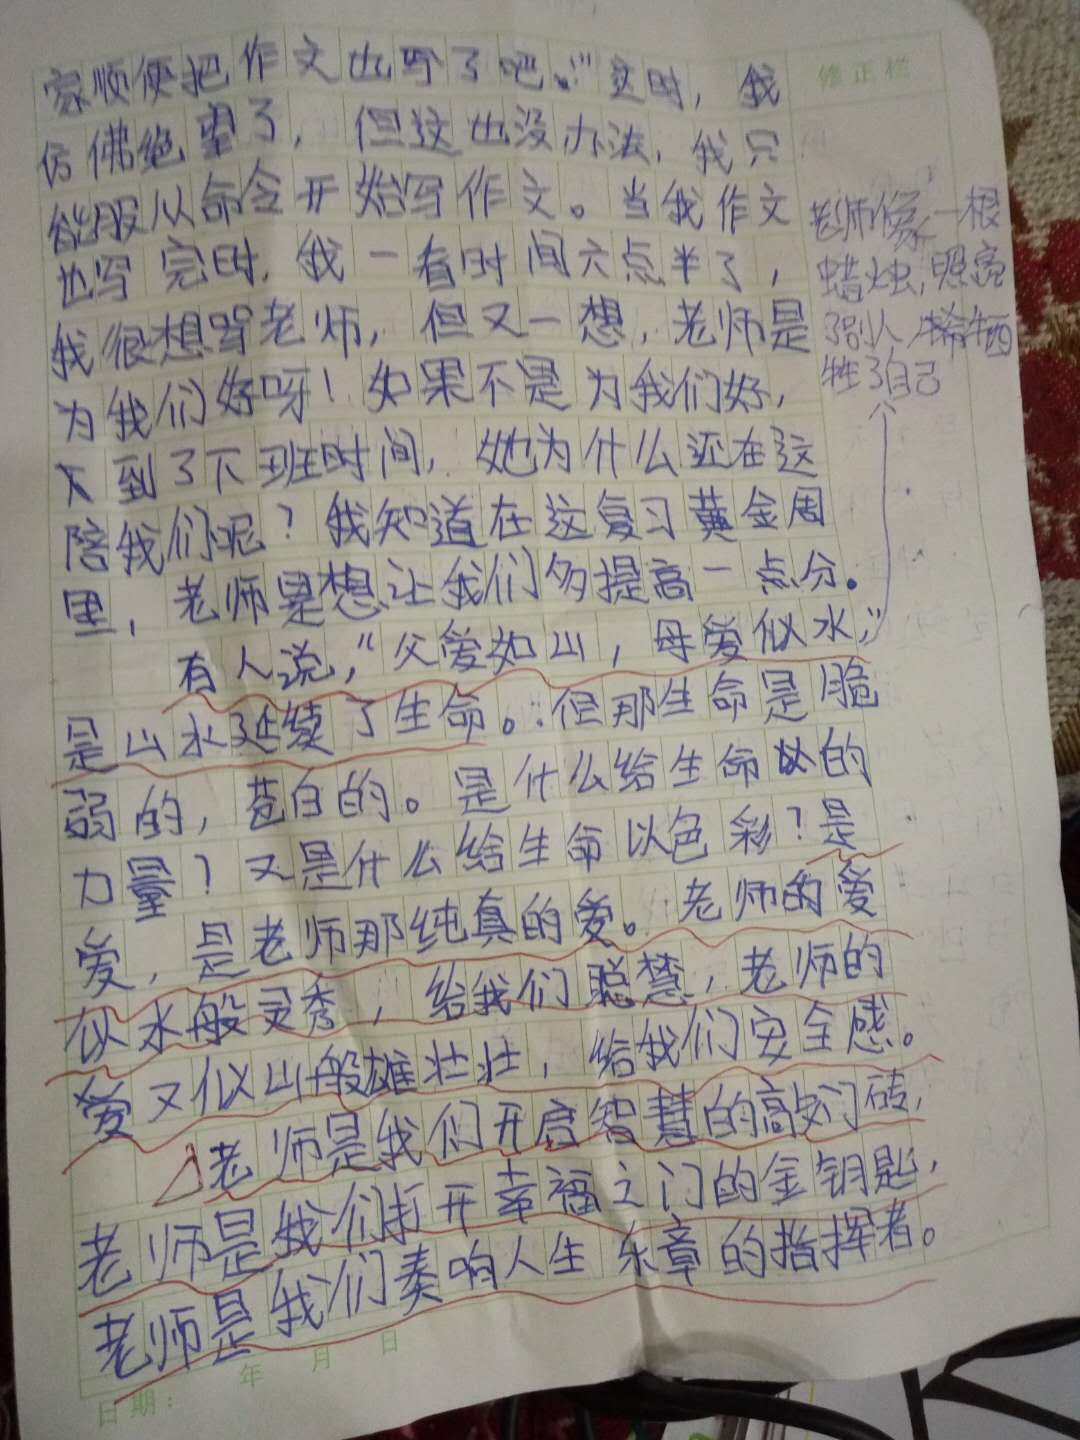 家顺便把作文也写了吧。”这时，我
仿佛绝望了，但这也没办法，我只
能服从命令开始写作文。当我作文
也写完时，我一看时间六点半了，
我很想骂老师，但又一想，老师是
为我们好呀！如果不是为我们好，
到了下班时间，她为什么还在这
陪我们呢？我知道在这复习黄金周
里，老师是想让我们多提高一点分。
有人说，“父爱如山，母爱似水，”
是山水延续了生命。但那生命是脆
弱的，苍白的。是什么给生命以的
力量？又是什么给生命以色彩？是
爱，是老师那纯真的爱。老师的爱
似水般灵秀，给我们聪慧，老师的
爱又似山般雄壮壮，给我们安全感。
老师是我们开启智慧的敲门砖，
老师是我们打开幸福之门的金钥匙，
老师是我们奏响人生乐章的指挥者。
日期： 年 月 日
修正栏
老师像一根
蜡烛，照亮
了别人，牺牲
了自己